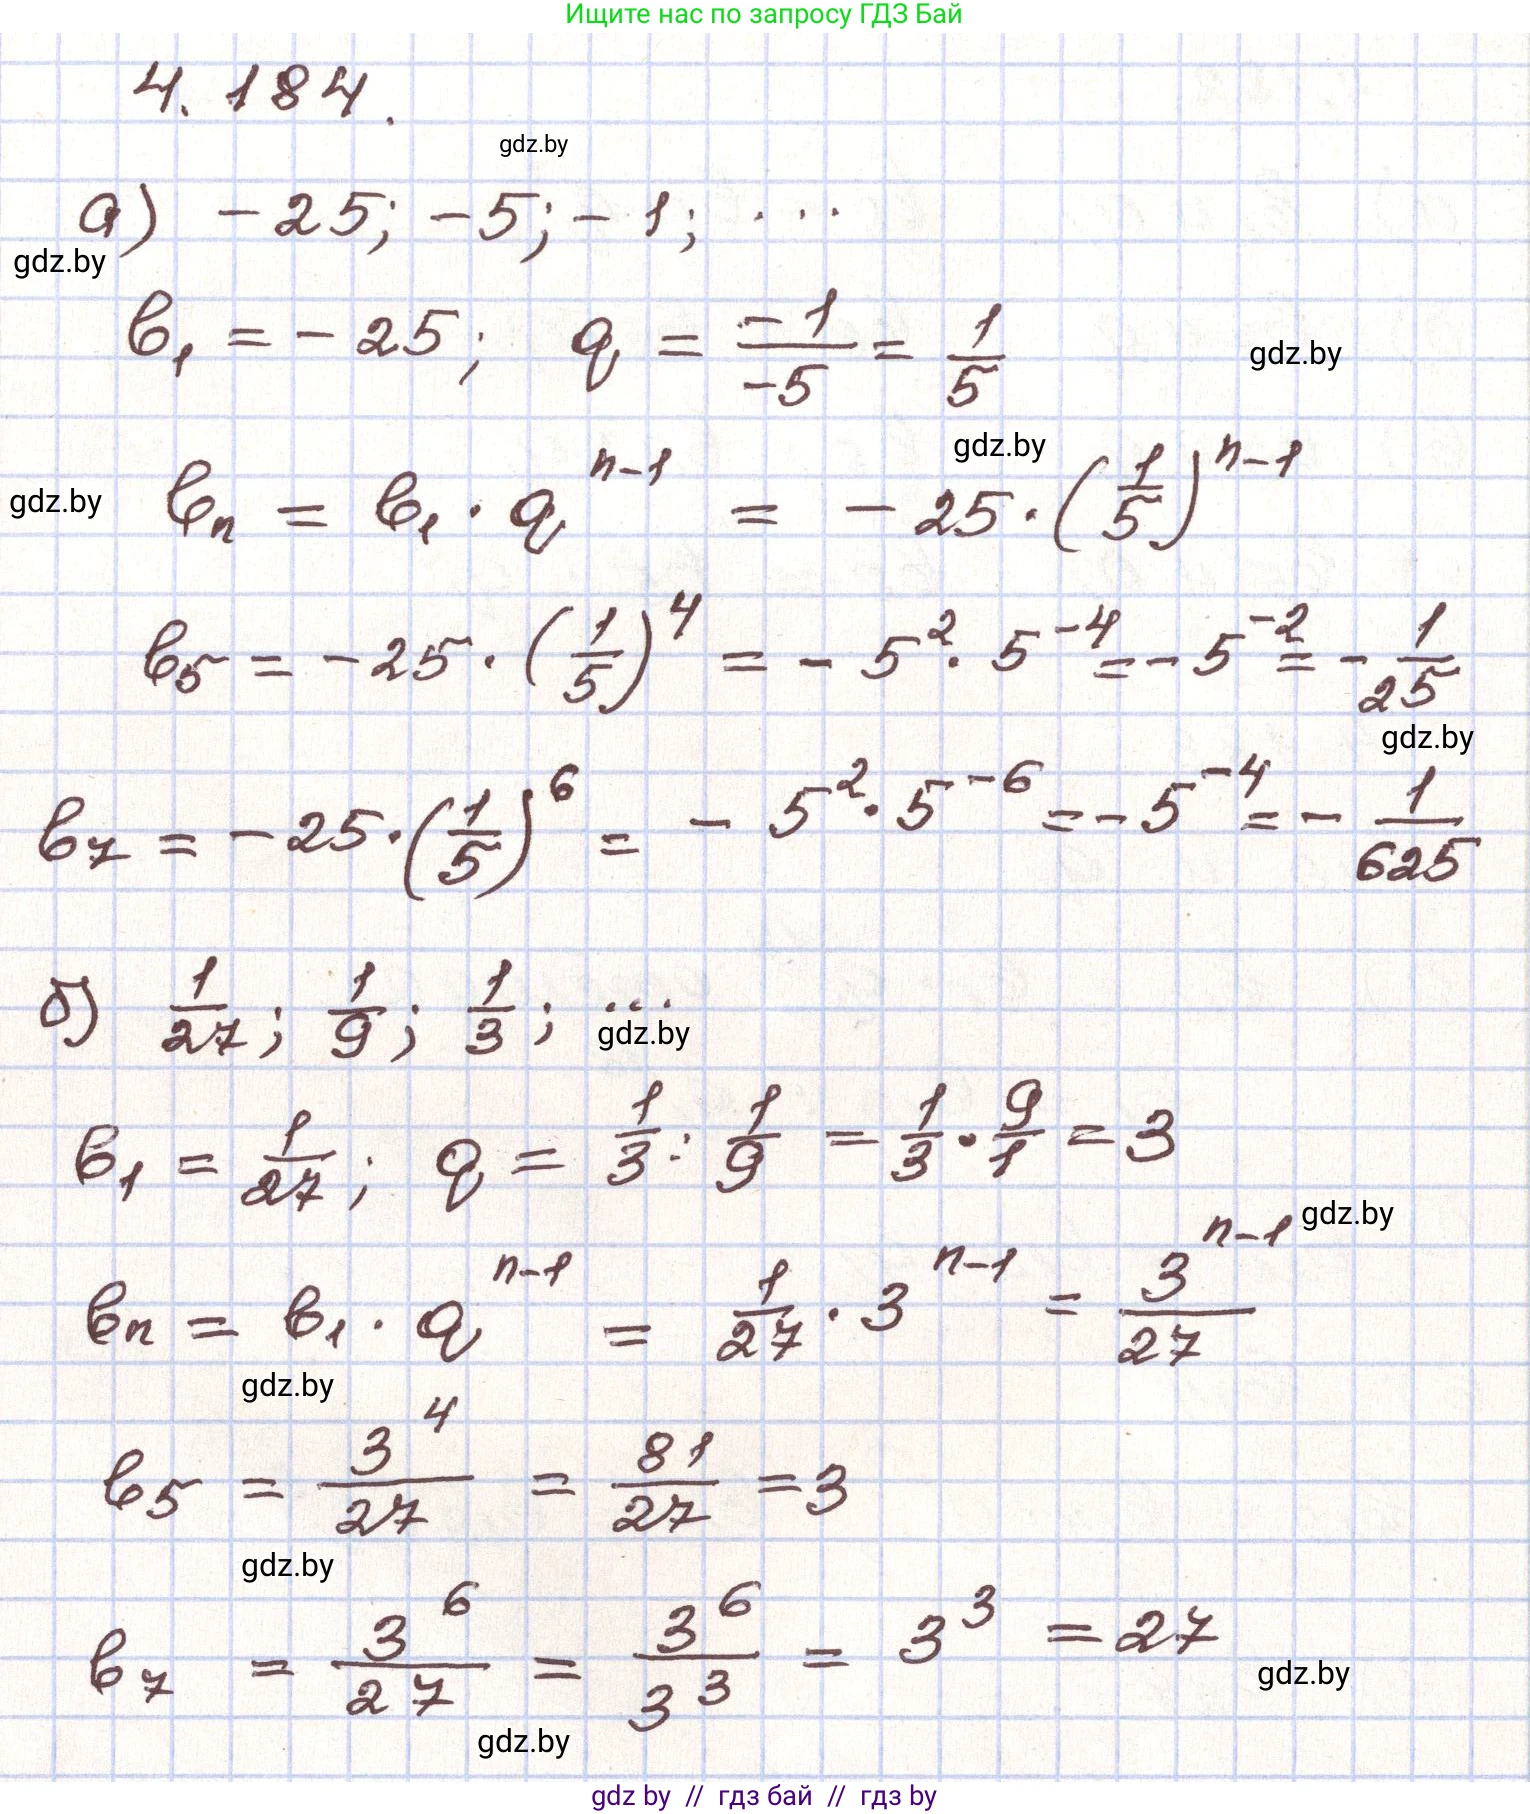 Ищите нас по запросу ГДЗ Бай
4.184.
gdz.by
а) -25; -5; -1; ...
gdz.by
b₁ = -25; q = -1/-5 = 1/5
gdz.by
gdz.by
gdz.by
bₙ = b₁ · qⁿ⁻¹ = -25 · (1/5)ⁿ⁻¹
b₅ = -25 · (1/5)⁴ = -5² · 5⁻⁴ = -5⁻² = -1/25
gdz.by
b₇ = -25 · (1/5)⁶ = -5² · 5⁻⁶ = -5⁻⁴ = -1/625
б) 1/27; 1/9; 1/3; ...
gdz.by
b₁ = 1/27; q = 1/3 : 1/9 = 1/3 · 9/1 = 3
gdz.by
bₙ = b₁ · qⁿ⁻¹ = 1/27 · 3ⁿ⁻¹ = 3ⁿ⁻¹/27
gdz.by
b₅ = 3⁴/27 = 81/27 = 3
gdz.by
b₇ = 3⁶/27 = 3⁶/3³ = 3³ = 27
gdz.by
gdz.by
gdz by // гдз бай // гдз by